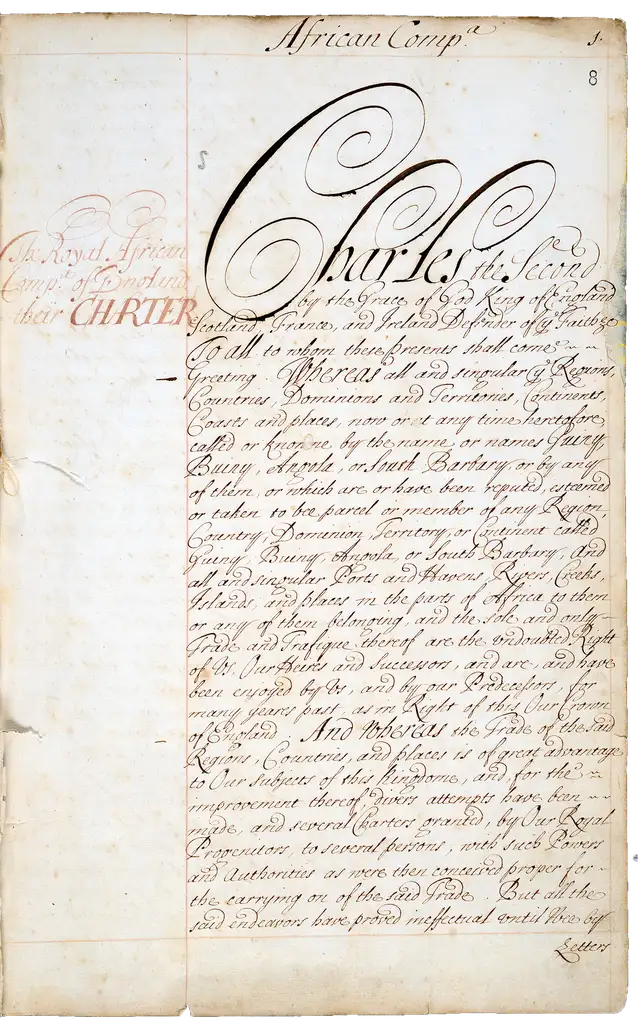 African Comp.a
1.
8
The Royal African
Comp.a of England
their CHARTER
Charles the Second
by the Grace of God King of England
Scotland, France, and Ireland Defender of ye Faith &c
To all to whom these presents shall come
Greeting. Whereas all and singular ye Regions,
Countries, Dominions and Territories, Continents,
Coasts and places, now or at any time heretofore
called or knowne by the name or names Guiny,
Buiny, Angola, or South Barbary, or by any
of them, or which are or have been reputed, esteemed
or taken to bee parcel or member of any Region,
Country, Dominion, Territory, or Continent called
Guiny, Buiny, Angola, or South Barbary, And
all and singular Ports and Havens, Rivers, Creeks,
Islands, and places in the parts of Africa to them
or any of them belonging, and the sole and only
Trade and Trafique thereof are the undoubted Right
of Us, Our Heires and Successors, and are, and have
been enjoyed by Us, and by our Predecessors, for
many yeares past, as in Right of this Our Crown
of England. And Whereas the Trade of the said
Regions, Countries, and places is of great advantage
to Our subjects of this Kingdome, and, for the
improvement thereof, divers attempts have been
made, and several Charters granted, by Our Royal
Progenitors, to several persons, with such Powers
and Authorities as were then conceived proper for
the carrying on of the said Trade. But all the
said endeavors have proved ineffectual until Wee by
Letters